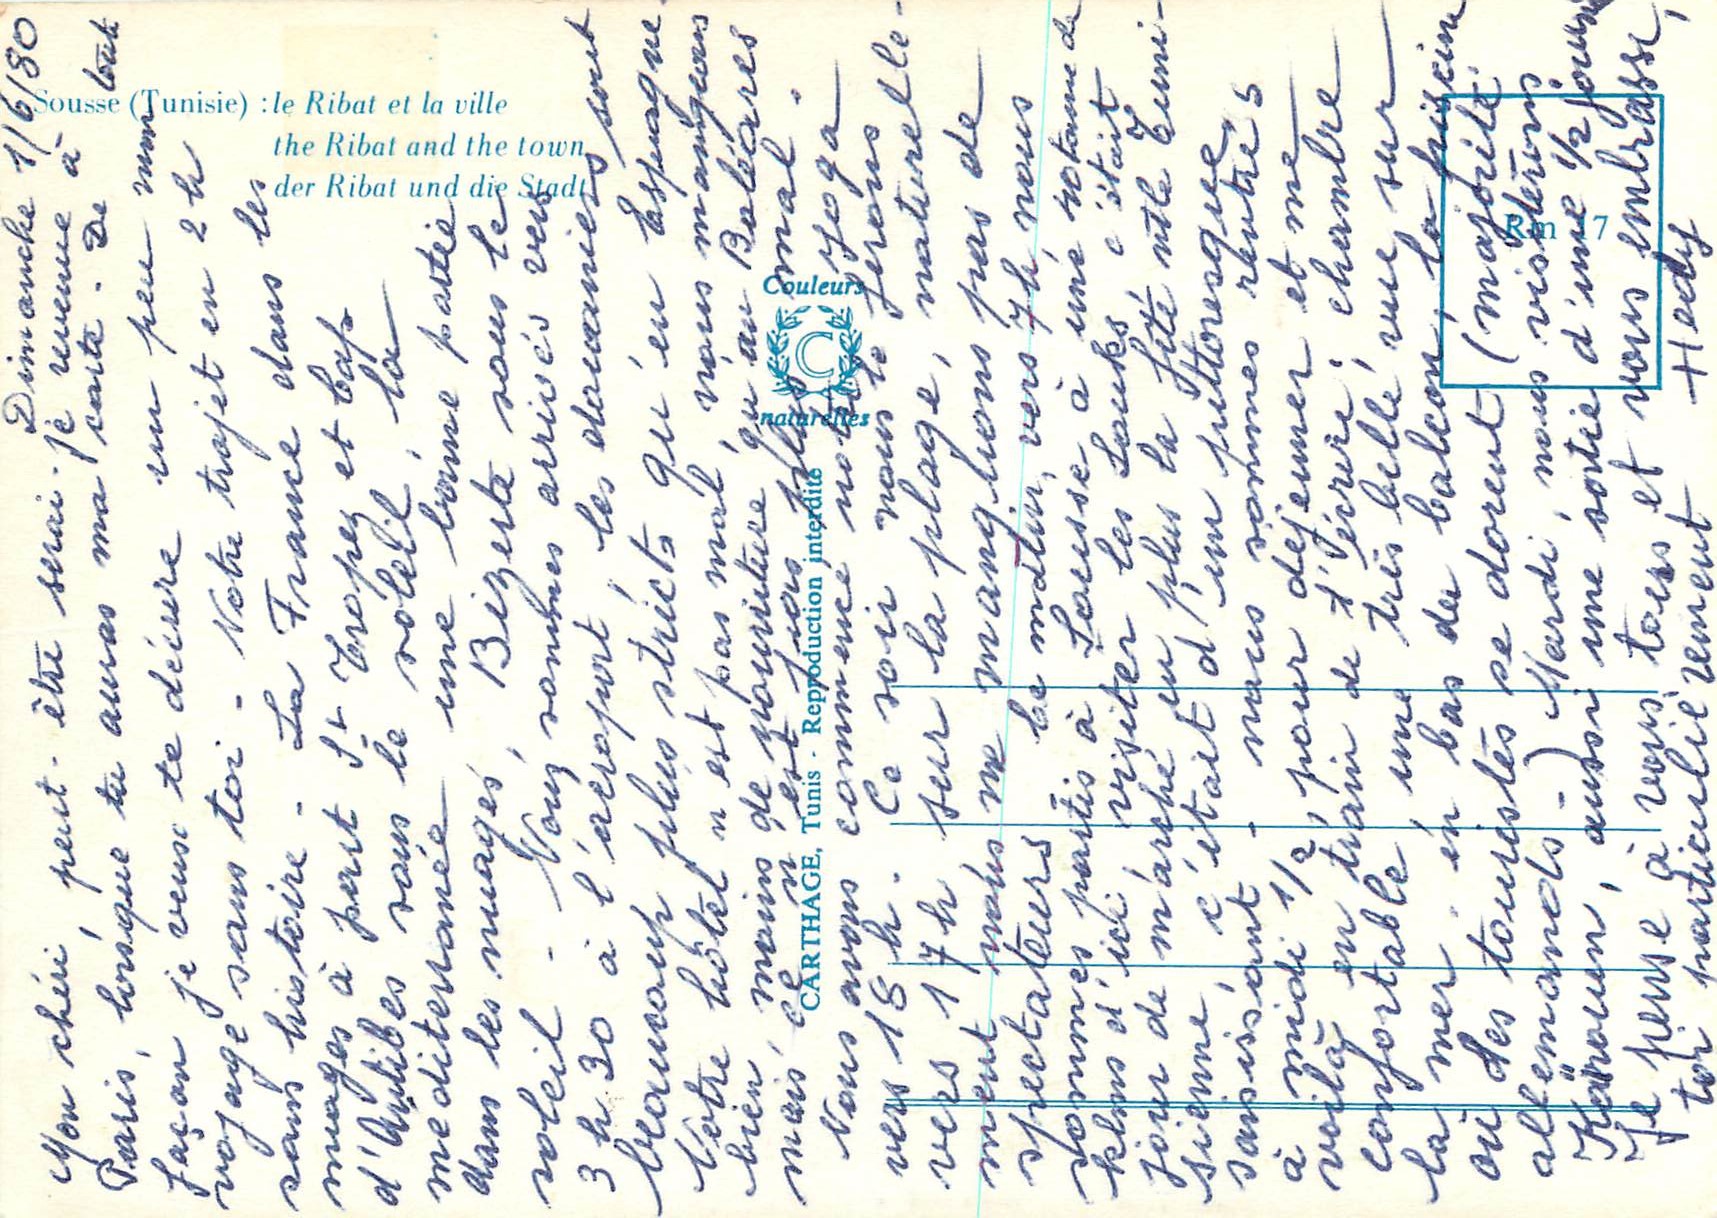 Sousse (Tunisie) : le Ribat et la ville
the Ribat and the town
der Ribat und die Stadt
Couleurs
C
naturelles
CARTHAGE, Tunis - Reproduction interdite
Rm 17
Dimanche 1/6/80
Mon chéri, peut-être serai-je revenue à
Paris, lorsque tu auras ma carte. De toute
façon je veux te décrire un peu mon
voyage sans toi - Notre trajet en 2h
sans histoire - La France dans les
nuages à part St Tropez et Cap
d'Antibes sous le soleil, la
méditerranée une bonne partie
dans les nuages, Bizerte sous le
soleil - Nous sommes arrivés vers
3h30 à l'aéroport les douaniers sont
beaucoup plus stricts qu'en Espagne.
Notre hôtel n'est pas mal, nous mangeons
bien, moins de nourriture qu'au Baléares
mais ce n'est pas plus mal.
Nous avons commencé notre yoga
vers 18h. Ce soir nous le ferons
vers 17h sur la plage, naturelle-
ment nous ne manquons pas de
spectateurs. Ce matin, vers 7h nous
sommes partis à Sousse à une
klms d'ici visiter les souks c'était
jour de marché en plus la fête ntle Tuni-
sienne, c'était d'un pittoresque
saisissant - nous sommes rentrés
à midi 1/2 pour déjeuner et me
voilà en train de t'écrire, chambre
confortable une très belle vue sur
la mer en bas du balcon, la piscine
où des touristes se dorent (majorité
allemands -) Mardi, nous visiterons
Kairouan, aussi une sortie d'une 1/2 journée
Je pense à vous tous et vous embrasse,
toi particulièrement Hedy